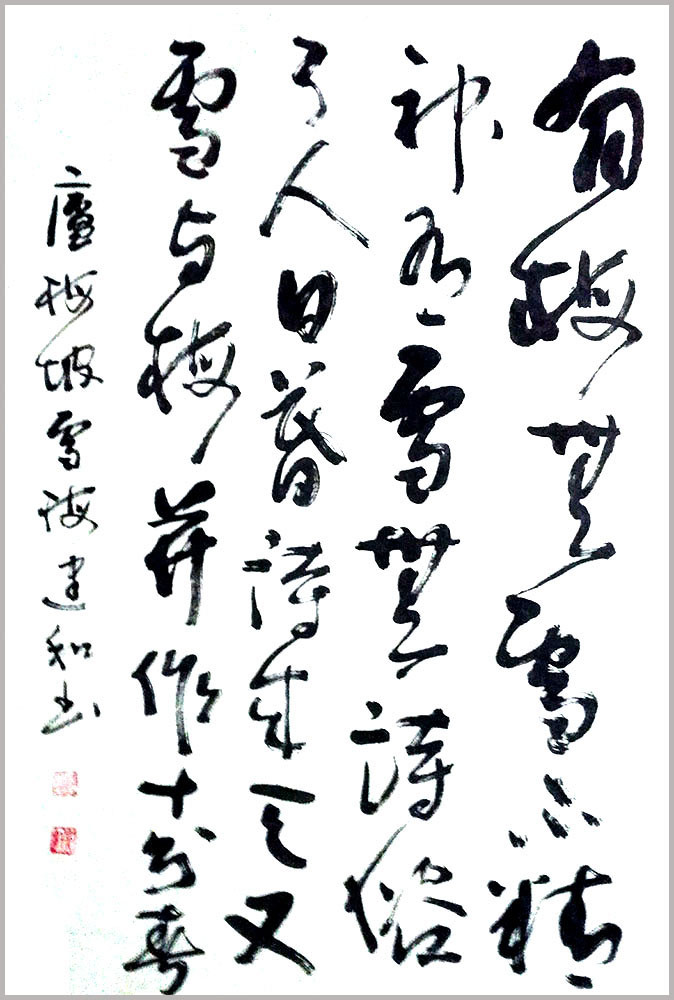 有梅無雪不精
神有雪無詩俗
了人日暮詩成天又
雪与梅并作十分春
盧梅坡雪梅建和书